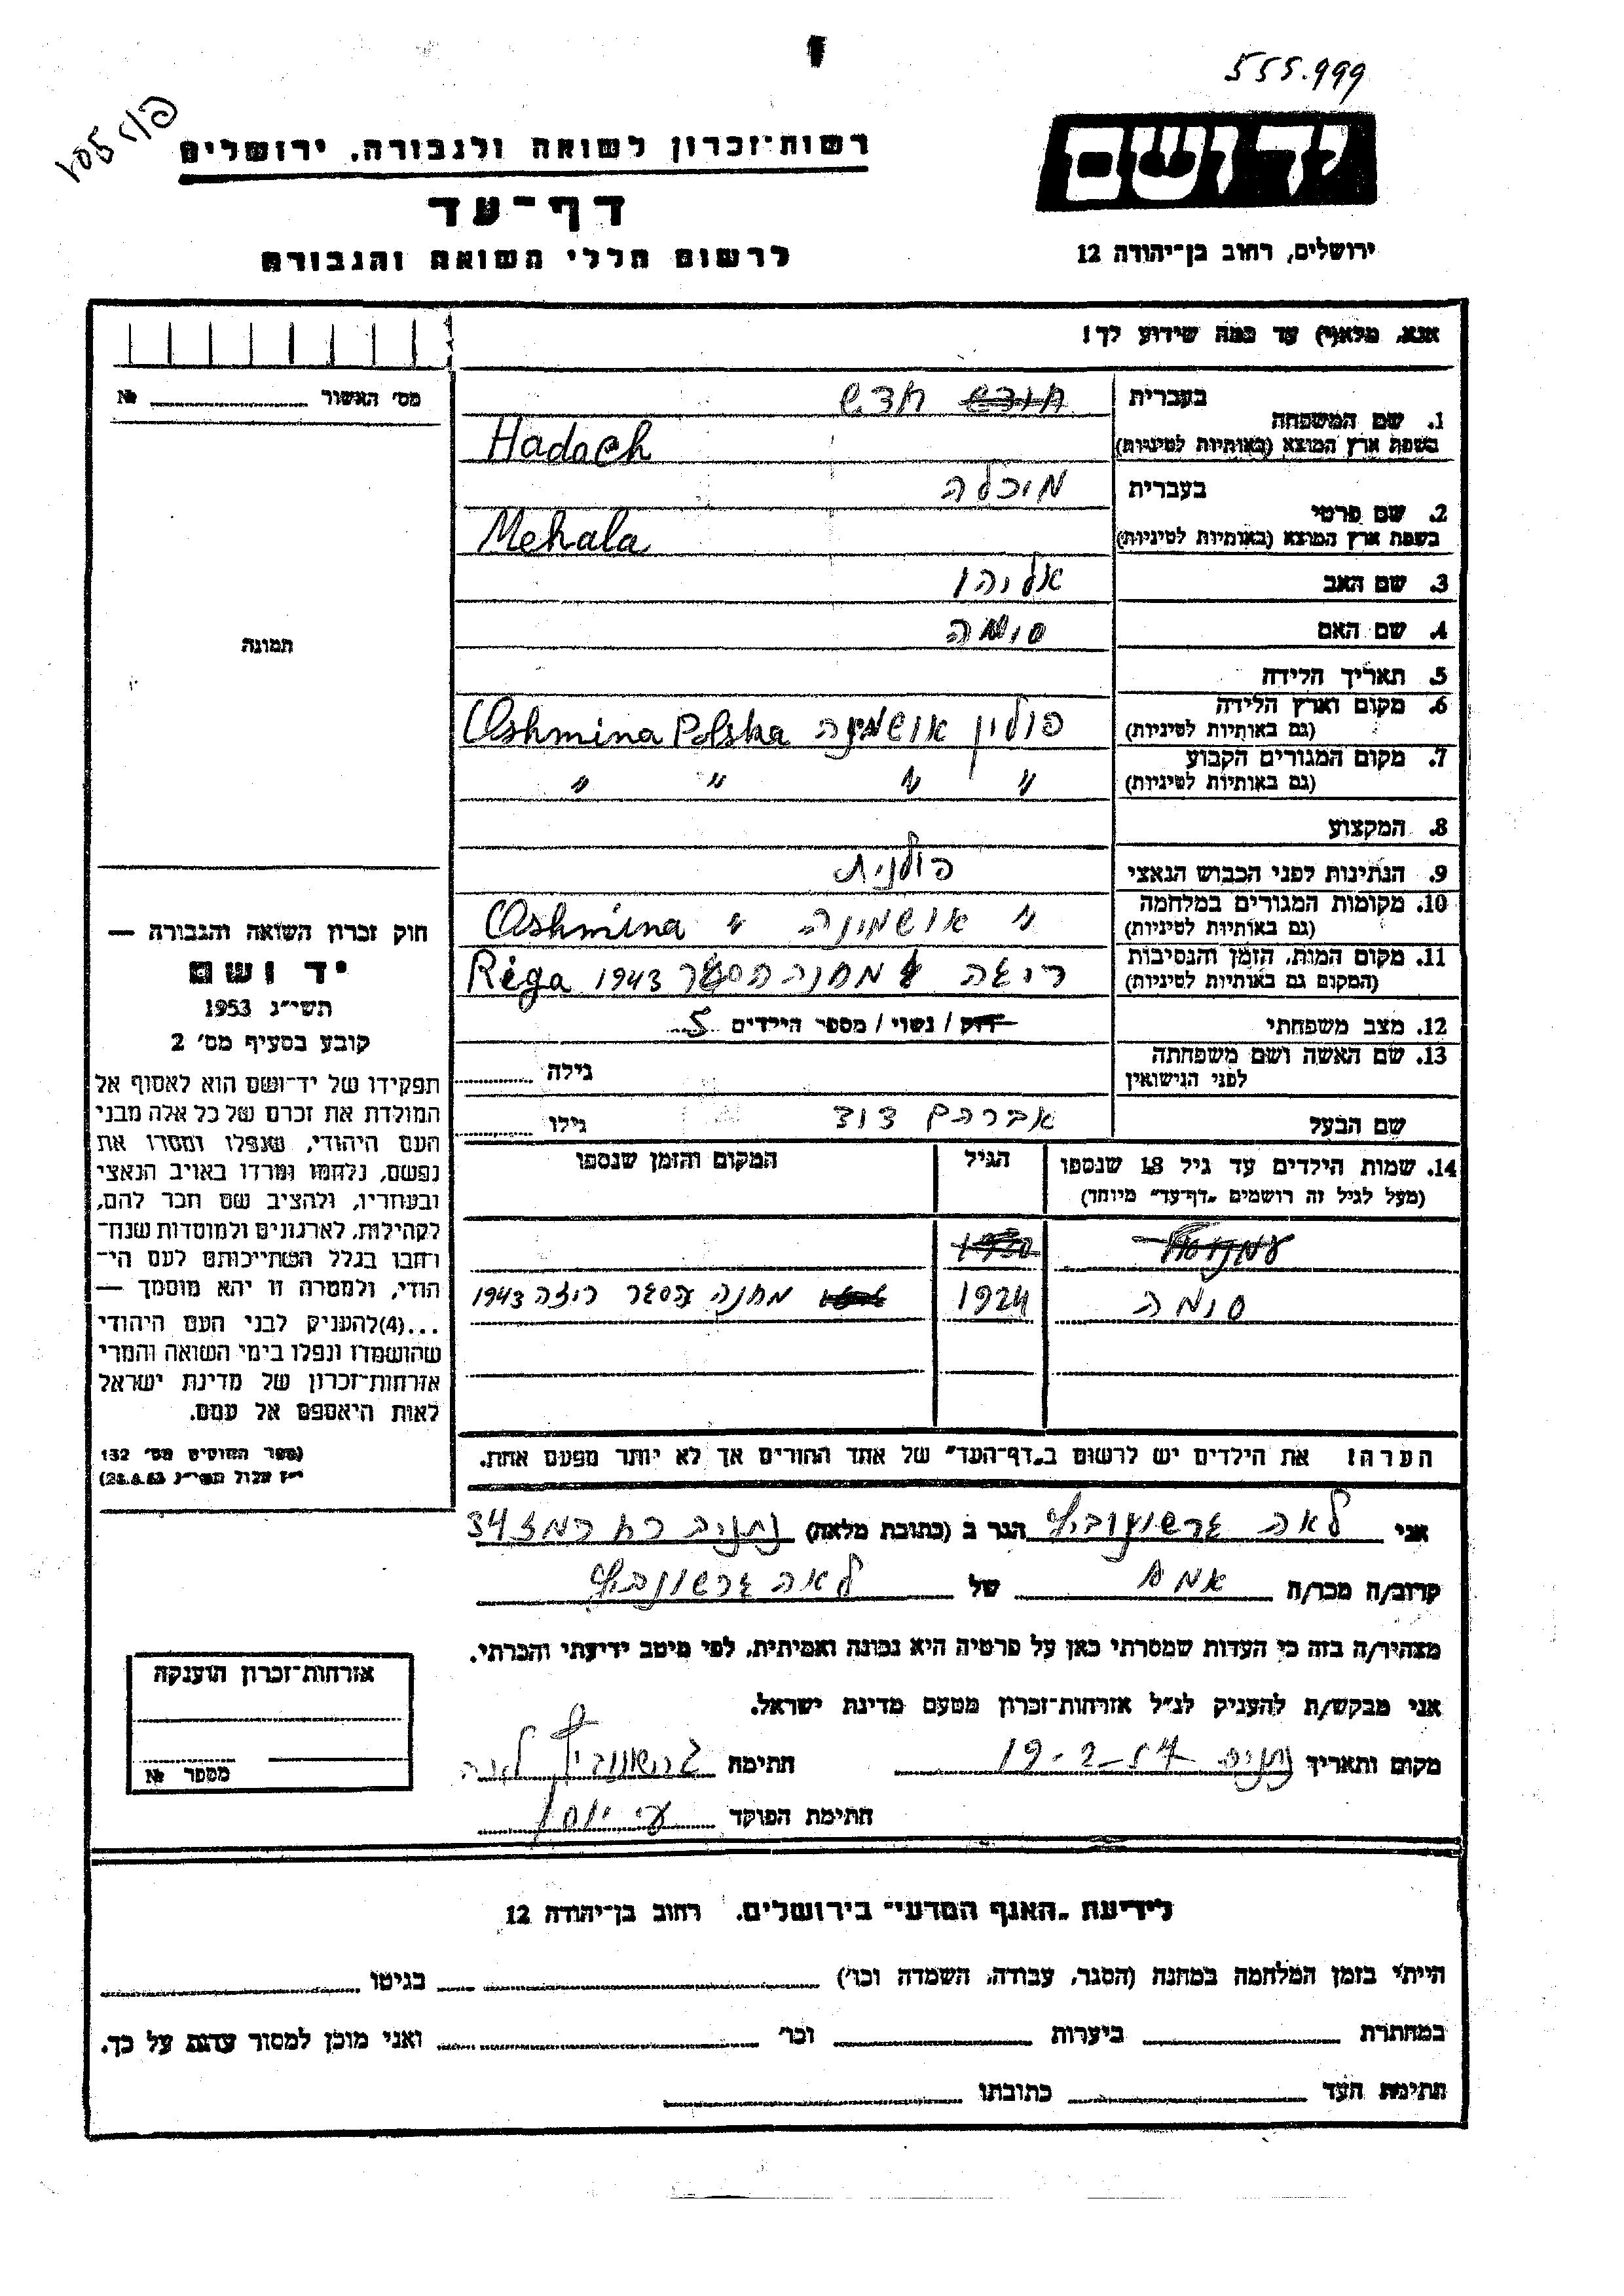 555.999
יד ושם
רשות־זכרון לשואה ולגבורה, ירושלים
דף־עד
לרשום חללי השואה והגבורה
ירושלים, רחוב בן־יהודה 12
אנא, מלא(י) עד כמה שידוע לך!
מס׳ האשור № 
1. שם המשפחה
בעברית חדש
בשפת ארץ המוצא (באותיות לטיניות) Hadach
2. שם פרטי
בעברית מיכלה
בשפת ארץ המוצא (באותיות לטיניות) Mehala
3. שם האב אליהו
4. שם האם
תמונה
5. תאריך הלידה
6. מקום וארץ הלידה (גם באותיות לטיניות) פולין אושמינה Oshmina Polska
7. מקום המגורים הקבוע (גם באותיות לטיניות) " " " "
8. המקצוע
9. הנתינות לפני הכבוש הנאצי פולנית
10. מקומות המגורים במלחמה (גם באותיות לטיניות) " אושמינה " Oshmina
11. מקום המות, הזמן והנסיבות (המקום גם באותיות לטיניות) ריגה מחנה הסגר 1943 Règa
12. מצב משפחתי רוק / נשוי / מספר הילדים 5
13. שם האשה ושם משפחתה לפני הנישואין גילה
שם הבעל אברהם דוד גילו
14. שמות הילדים עד גיל 18 שנספו הגיל המקום והזמן שנספו
(מעל לגיל זה רושמים "דף־עד" מיוחד)
עמנואל 1930
סומה 1924 מחנה הסגר ריגה 1943
הערה! את הילדים יש לרשום ב"דף־העד" של אחד ההורים אך לא יותר מפעם אחת.
חוק זכרון השואה והגבורה —
יד ושם
תשי״ג 1953
קובע בסעיף מס׳ 2
תפקידו של יד־ושם הוא לאסוף אל
המולדת את זכרם של כל אלה מבני
העם היהודי, שנפלו ומסרו את
נפשם, נלחמו ומרדו באויב הנאצי
ובעוזריו, ולהציב שם וזכר להם,
לקהילות, לארגונים ולמוסדות שנח־
רבו בגלל השתייכותם לעם הי־
הודי, ולמטרה זו יהא מוסמך —
...(4)להעניק לבני העם היהודי
שהושמדו ונפלו בימי השואה והמרי
אזרחות־זכרון של מדינת ישראל
לאות היאספם אל עמם.
(ספר החוקים מס׳ 132
י״ז אלול תשי״ג 28.8.53)
אני לאה גרשונוביץ הגר ב (כתובת מלאה) נתניה רח רמז 34
קרוב/ה מכר/ה אמא של לאה גרשונוביץ
מצהיר/ה בזה כי העדות שמסרתי כאן על פרטיה היא נכונה ואמיתית, לפי מיטב ידיעתי והכרתי.
אני מבקש/ת להעניק לנ״ל אזרחות־זכרון מטעם מדינת ישראל.
מקום ותאריך נתניה 19-2-57 חתימה גרשונוביץ לאה
חתימת הפוקד
אזרחות־זכרון הוענקה
מספר №
לידיעת "האגף המדעי" בירושלים, רחוב בן־יהודה 12
הייתי בזמן המלחמה במחנה (הסגר, עבודה, השמדה וכו׳) בגיטו
במחתרת ביערות וכו׳ ואני מוכן למסור עדות על כך.
חתימת העד כתובתו